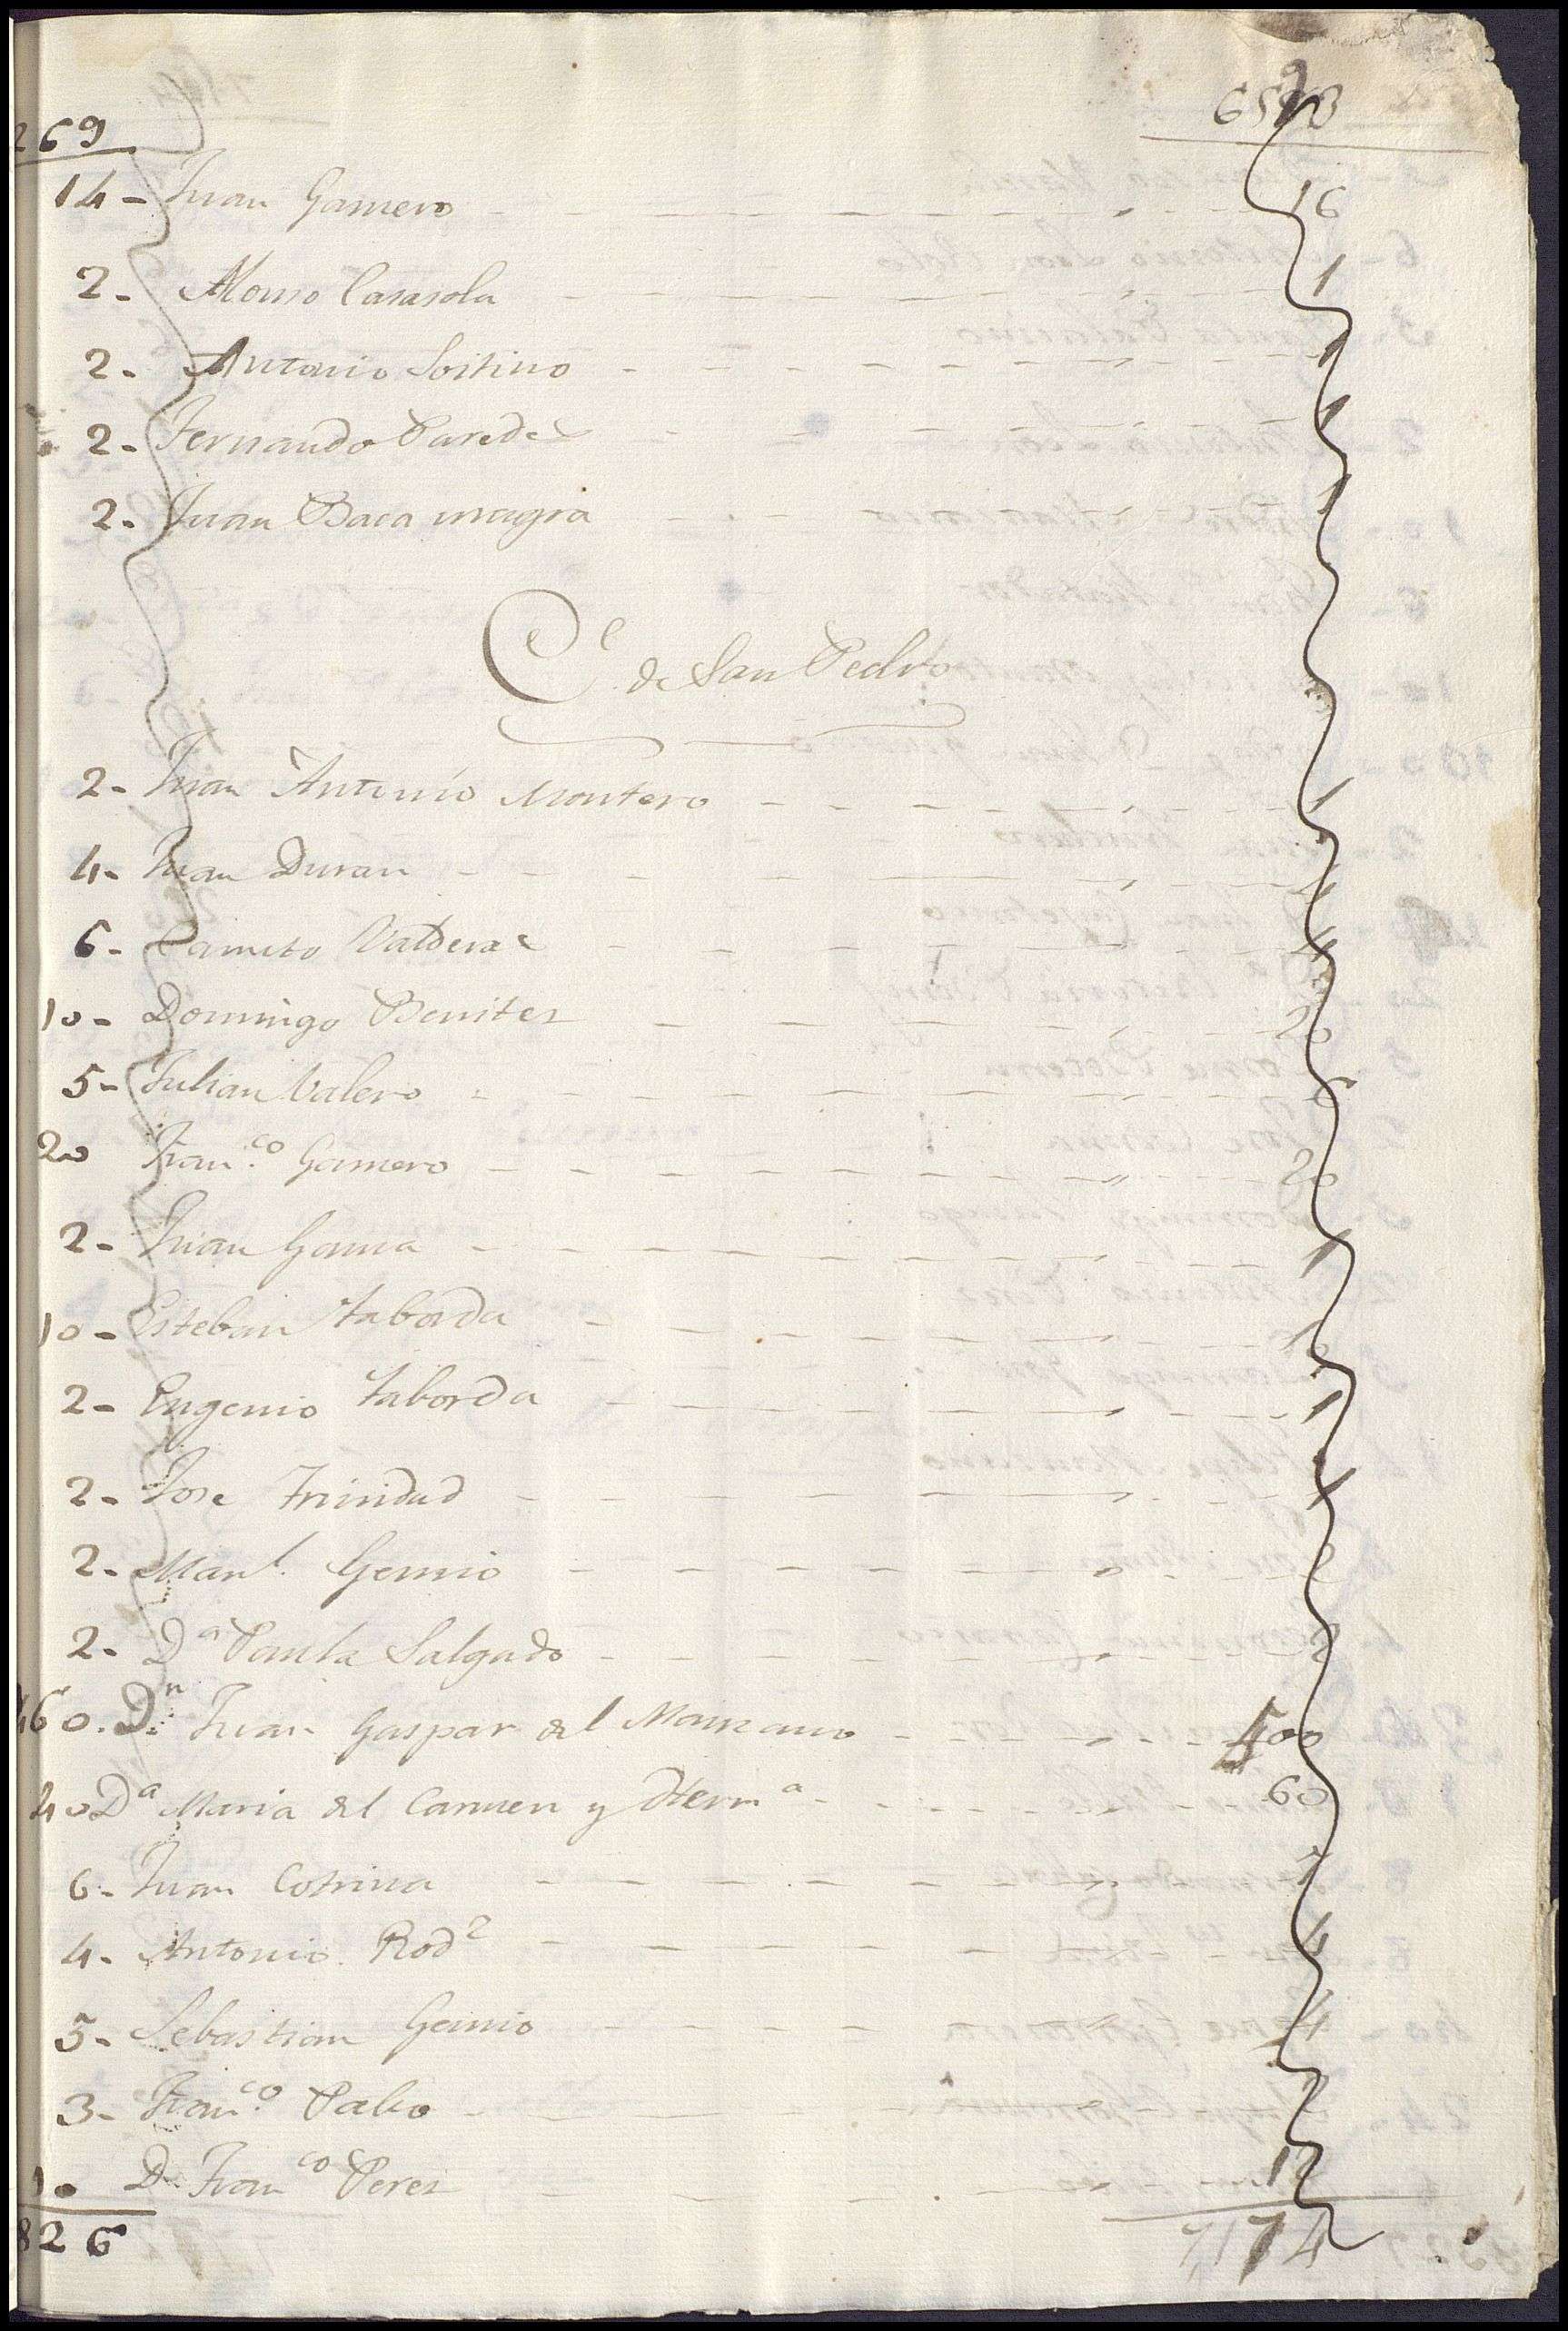 269
14 - Juan Gamero - - - - 16
2 - Alonso Casasola - - - - 1
2 - Antonio Sositino - - - - 1
2 - Fernando Paredes - - - - 1
2 - Juan Baca magra - - - - 1
Ce de San Pedro
2 - Juan Antonio Montero - - - - 1
4 - Juan Duran - - - - 4
6 - Valderas - - - - 4
10 - Domingo Benites - - - - 20
5 - Julian Valero - - - -
20 Franco Gamero - - - - 20
2 - Juan - - - - 1
10 - Esteban taborda - - - -
2 - Eugenio taborda - - - - 1
2 - Jose Trinidad - - - - 1
2 - Manl. Gemio - - - - 2
2 - Da Paula Salgado - - - - 2
460. Dn Juan Gaspar del Manzano - - - - 500
40 Da Maria del Carmen y Herma - - - - 60
6 - Juan Cotrina - - - -
4 - Antonio Rodz - - - - 4
5 - Sebastian Gemio - - - - 4
3 - Franco - - - -
10 Dn Franco Perez - - - - 12
826 7174